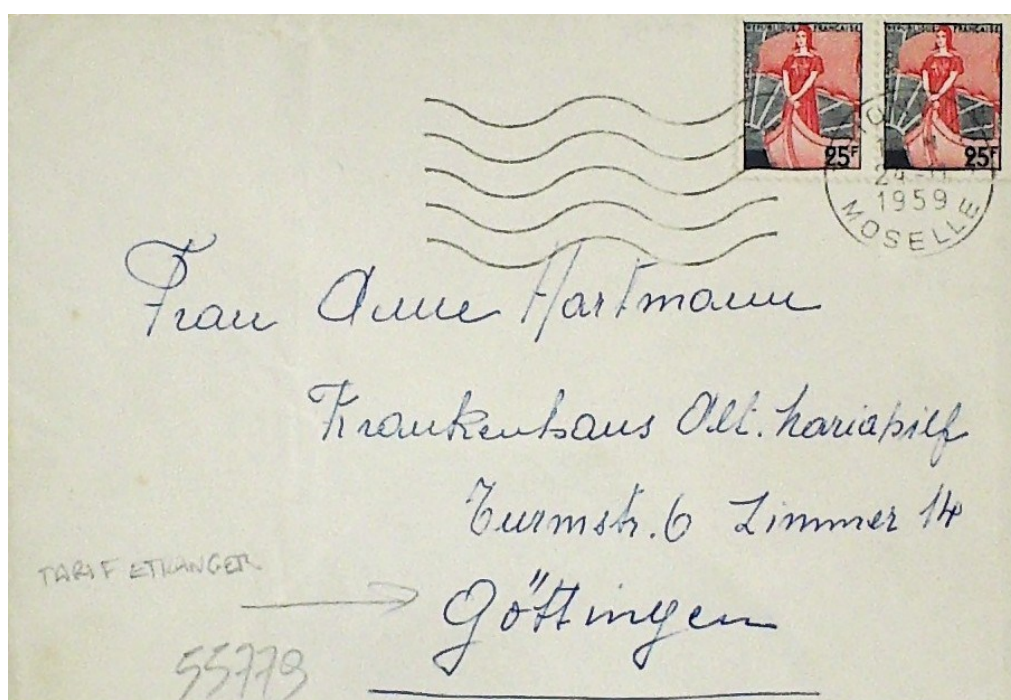 REPUBLIQUE FRANÇAISE REPUBLIQUE FRANÇAISE
25F 25F
24-11
1959
MOSELLE
Frau Anne Hartmann
Krankenhaus Alt. Mariahilf
Turmstr. 6 Zimmer 14
TARIF ETRANGER
Göttingen
55779